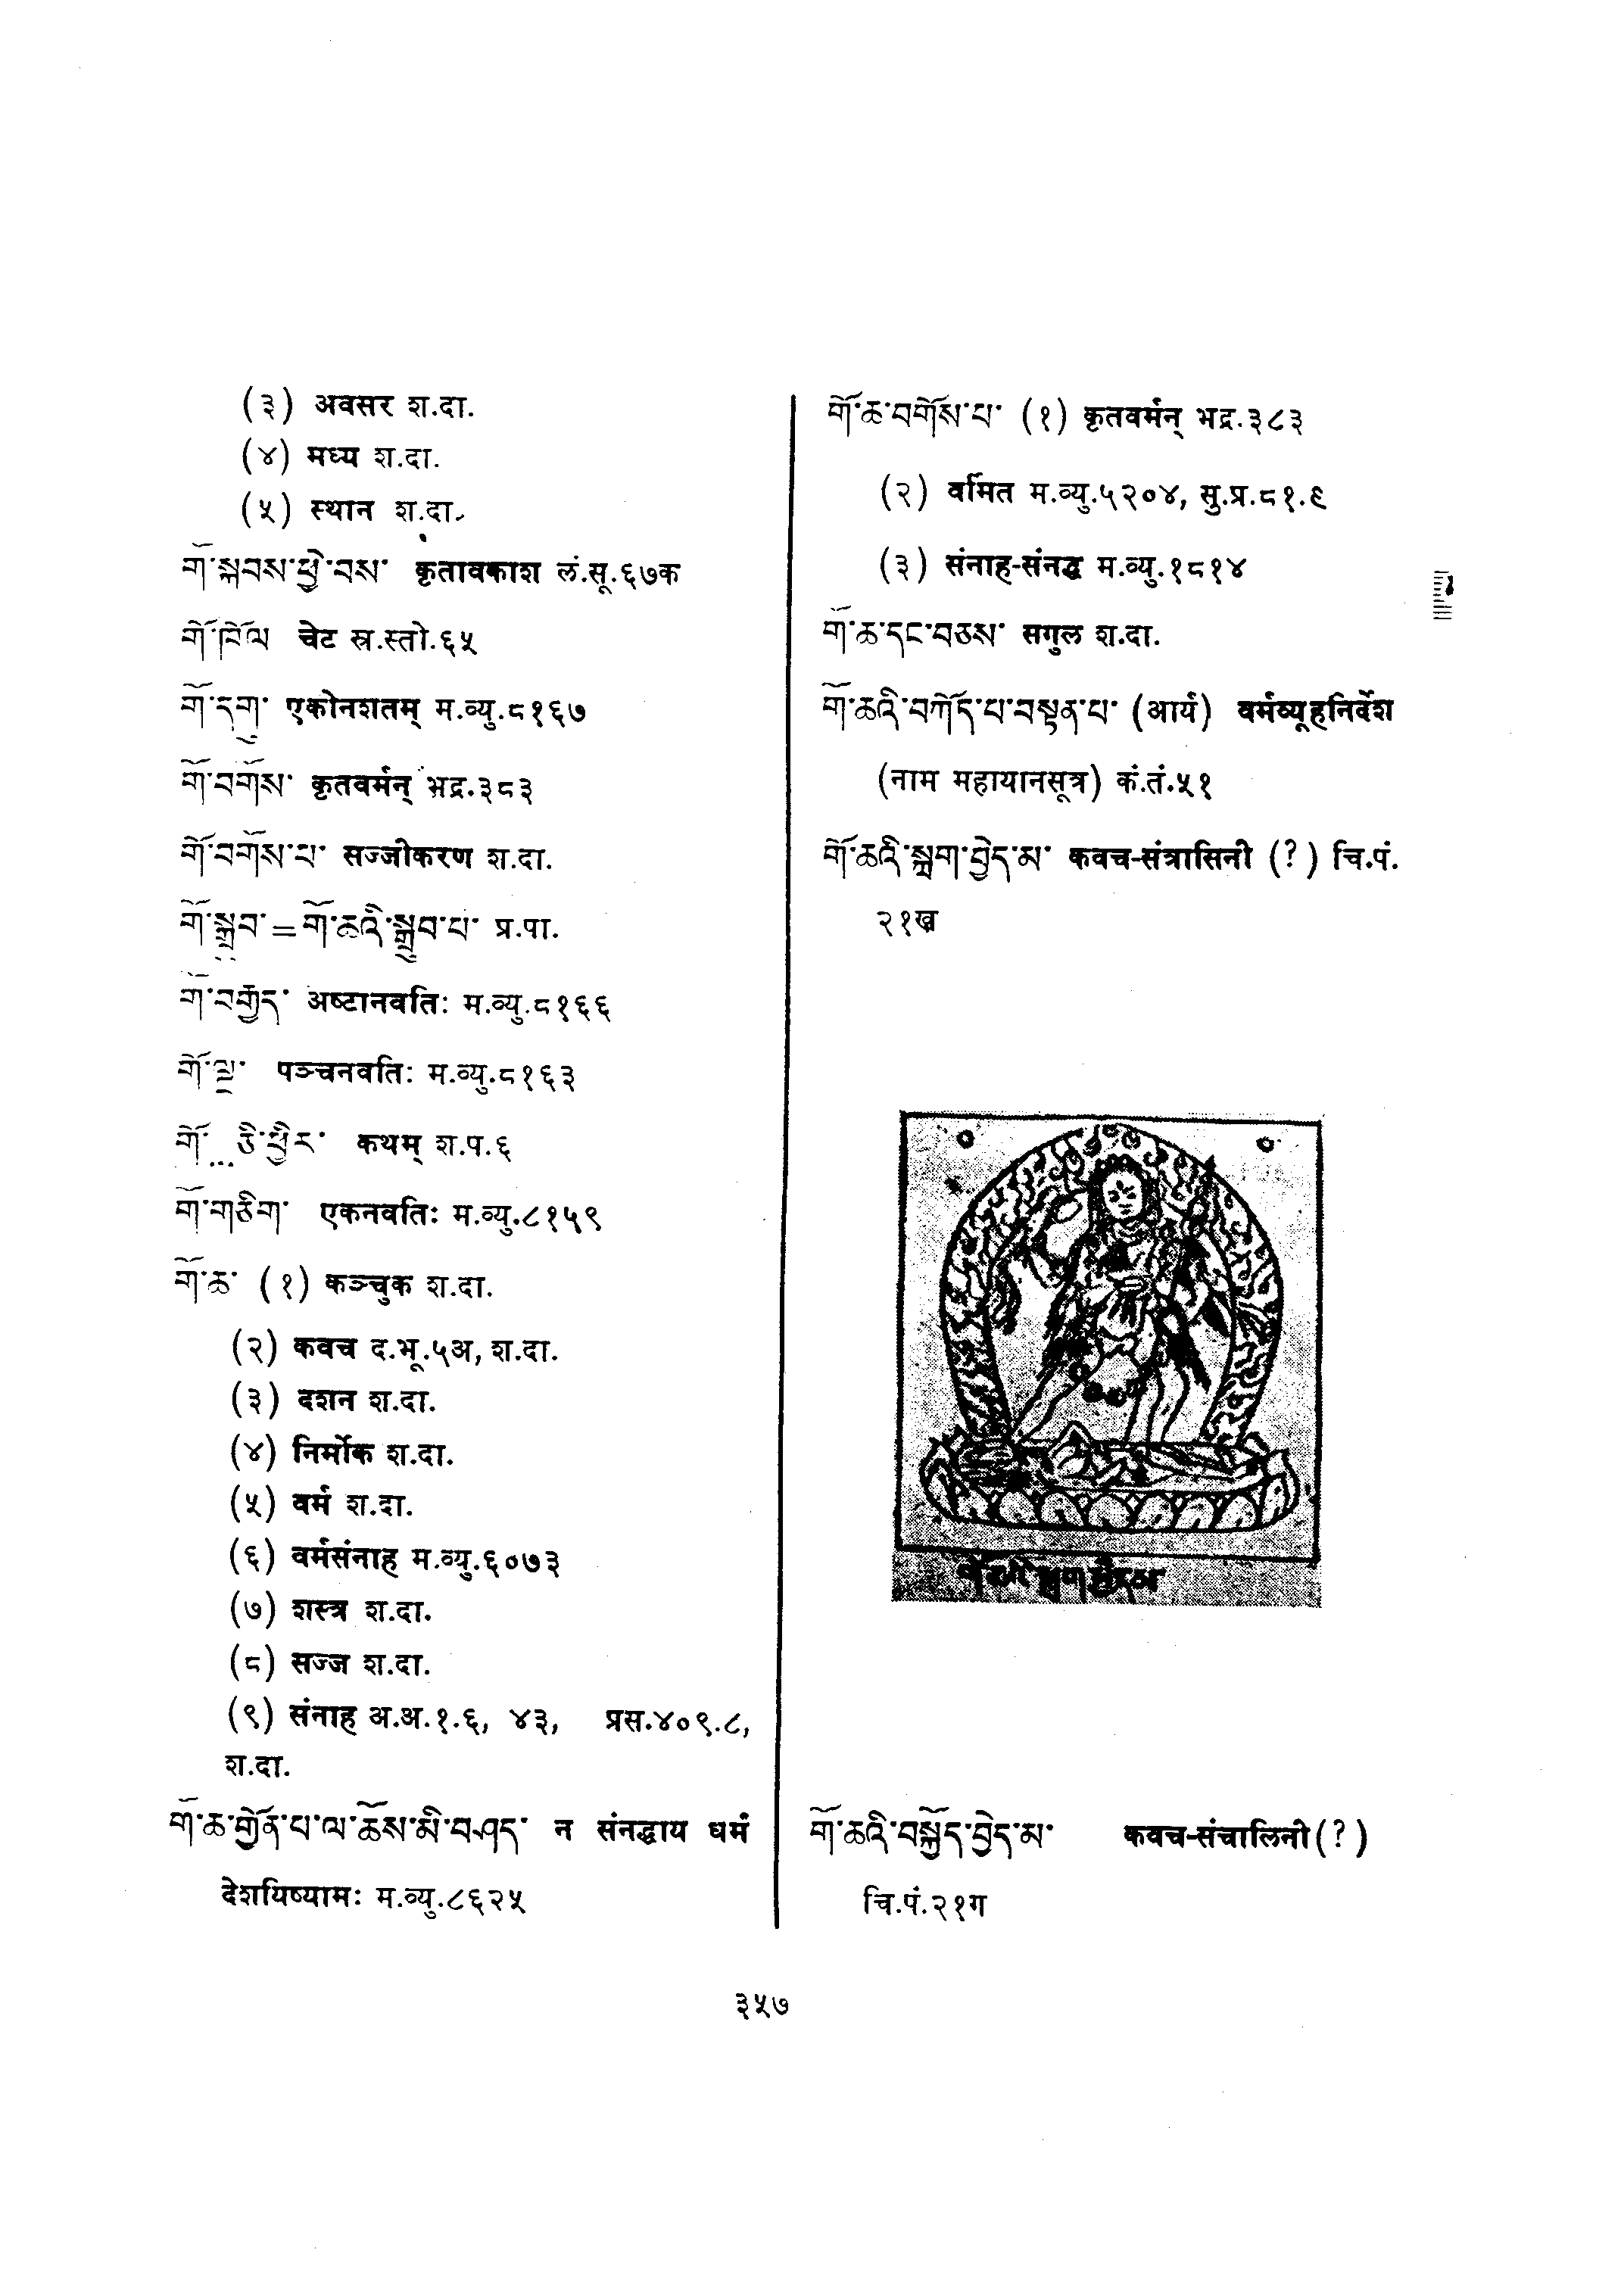 (३) अवसर श.दा.
(४) मध्य श.दा.
(५) स्थान श.दा.
གོ་སྐབས་ཕྱེ་བས་ कृतावकाश लं.सू.६७क
གོ་ཁོལ चेट स्र.स्तो.६५
གོ་དགུ་ एकोनशतम् म.व्यु.८१६७
གོ་བགོས་ कृतवर्मन् भद्र.३८३
གོ་བགོས་པ་ सज्जीकरण श.दा.
གོ་སྒྲུབ་ = གོ་ཆའི་སྒྲུབ་པ་ प्र.पा.
གོ་བརྒྱད་ अष्टानवतिः म.व्यु.८१६६
གོ་ལྔ་ पञ्चनवतिः म.व्यु.८१६३
གོ་...ཅི་ཕྱིར་ कथम् श.प.६
གོ་གཅིག་ एकनवतिः म.व्यु.८१५९
གོ་ཆ་ (१) कञ्चुक श.दा.
(२) कवच द.भू.५अ, श.दा.
(३) दशन श.दा.
(४) निर्मोक श.दा.
(५) वर्म श.दा.
(६) वर्मसंनाह म.व्यु.६०७३
(७) शस्त्र श.दा.
(८) सज्ज श.दा.
(९) संनाह अ.अ.१.६, ४३, प्रस.४०९.८,
श.दा.
གོ་ཆ་གྱོན་པ་ལ་ཆོས་མི་བཤད་ न संनद्धाय धर्मं
देशयिष्यामः म.व्यु.८६२५
གོ་ཆ་བགོས་པ་ (१) कृतवर्मन् भद्र.३८३
(२) वर्मित म.व्यु.५२०४, सु.प्र.८१.९
(३) संनाह-संनद्ध म.व्यु.१८१४
གོ་ཆ་དང་བཅས་ सगुल श.दा.
གོ་ཆའི་བཀོད་པ་བསྟན་པ་ (आर्य) वर्मव्यूहनिर्देश
(नाम महायानसूत्र) कं.तं.५१
གོ་ཆའི་སྐྲག་བྱེད་མ་ कवच-संत्रासिनी (?) चि.पं.
२१ख
གོ་ཆའི་སྐྲག་བྱེད་མ
གོ་ཆའི་བསྐྱོད་བྱེད་མ་ कवच-संचालिनी (?)
चि.पं.२१ग
३५७